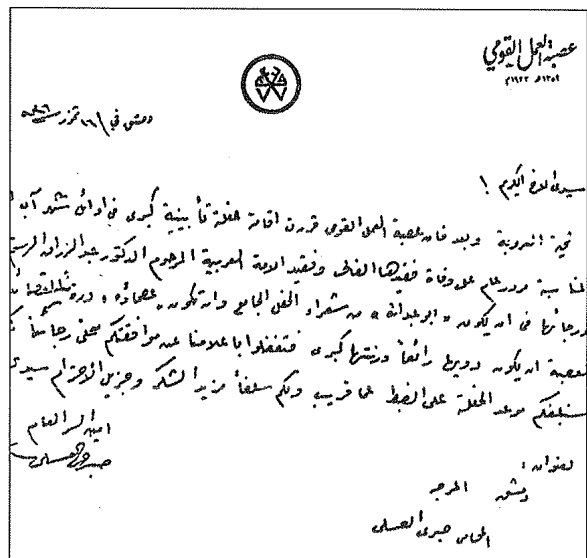 عصبة العمل القومي
دمشق في ١٦ تموز
سيدي الاخ الكريم !
تحية العروبة وبعد فان عصبة العمل القومي قررت اقامة حفلة تأبينية كبرى في اوائل شهر آب
لمناسبة مرور عام على وفاة فقيدها الغالي وفقيد الامة العربية المرحوم الدكتور عبد الرزاق
ورجاؤها في ان يكون « ابو عبدالله » من شعراء الحفل الجامع وان تكون « عصماؤه »
العصبة ان يكون دويها رائعاً ورنتها كبرى فتفضلوا باعلامنا عن موافقتكم
سنبلغكم موعد الحفلة على الضبط عما قريب ولكم سلفاً مزيد الشكر وجزيل الاحترام سيدي
امين السر العام
صبري العسلي
العنوان :
دمشق المرجه
المحامي صبري العسلي